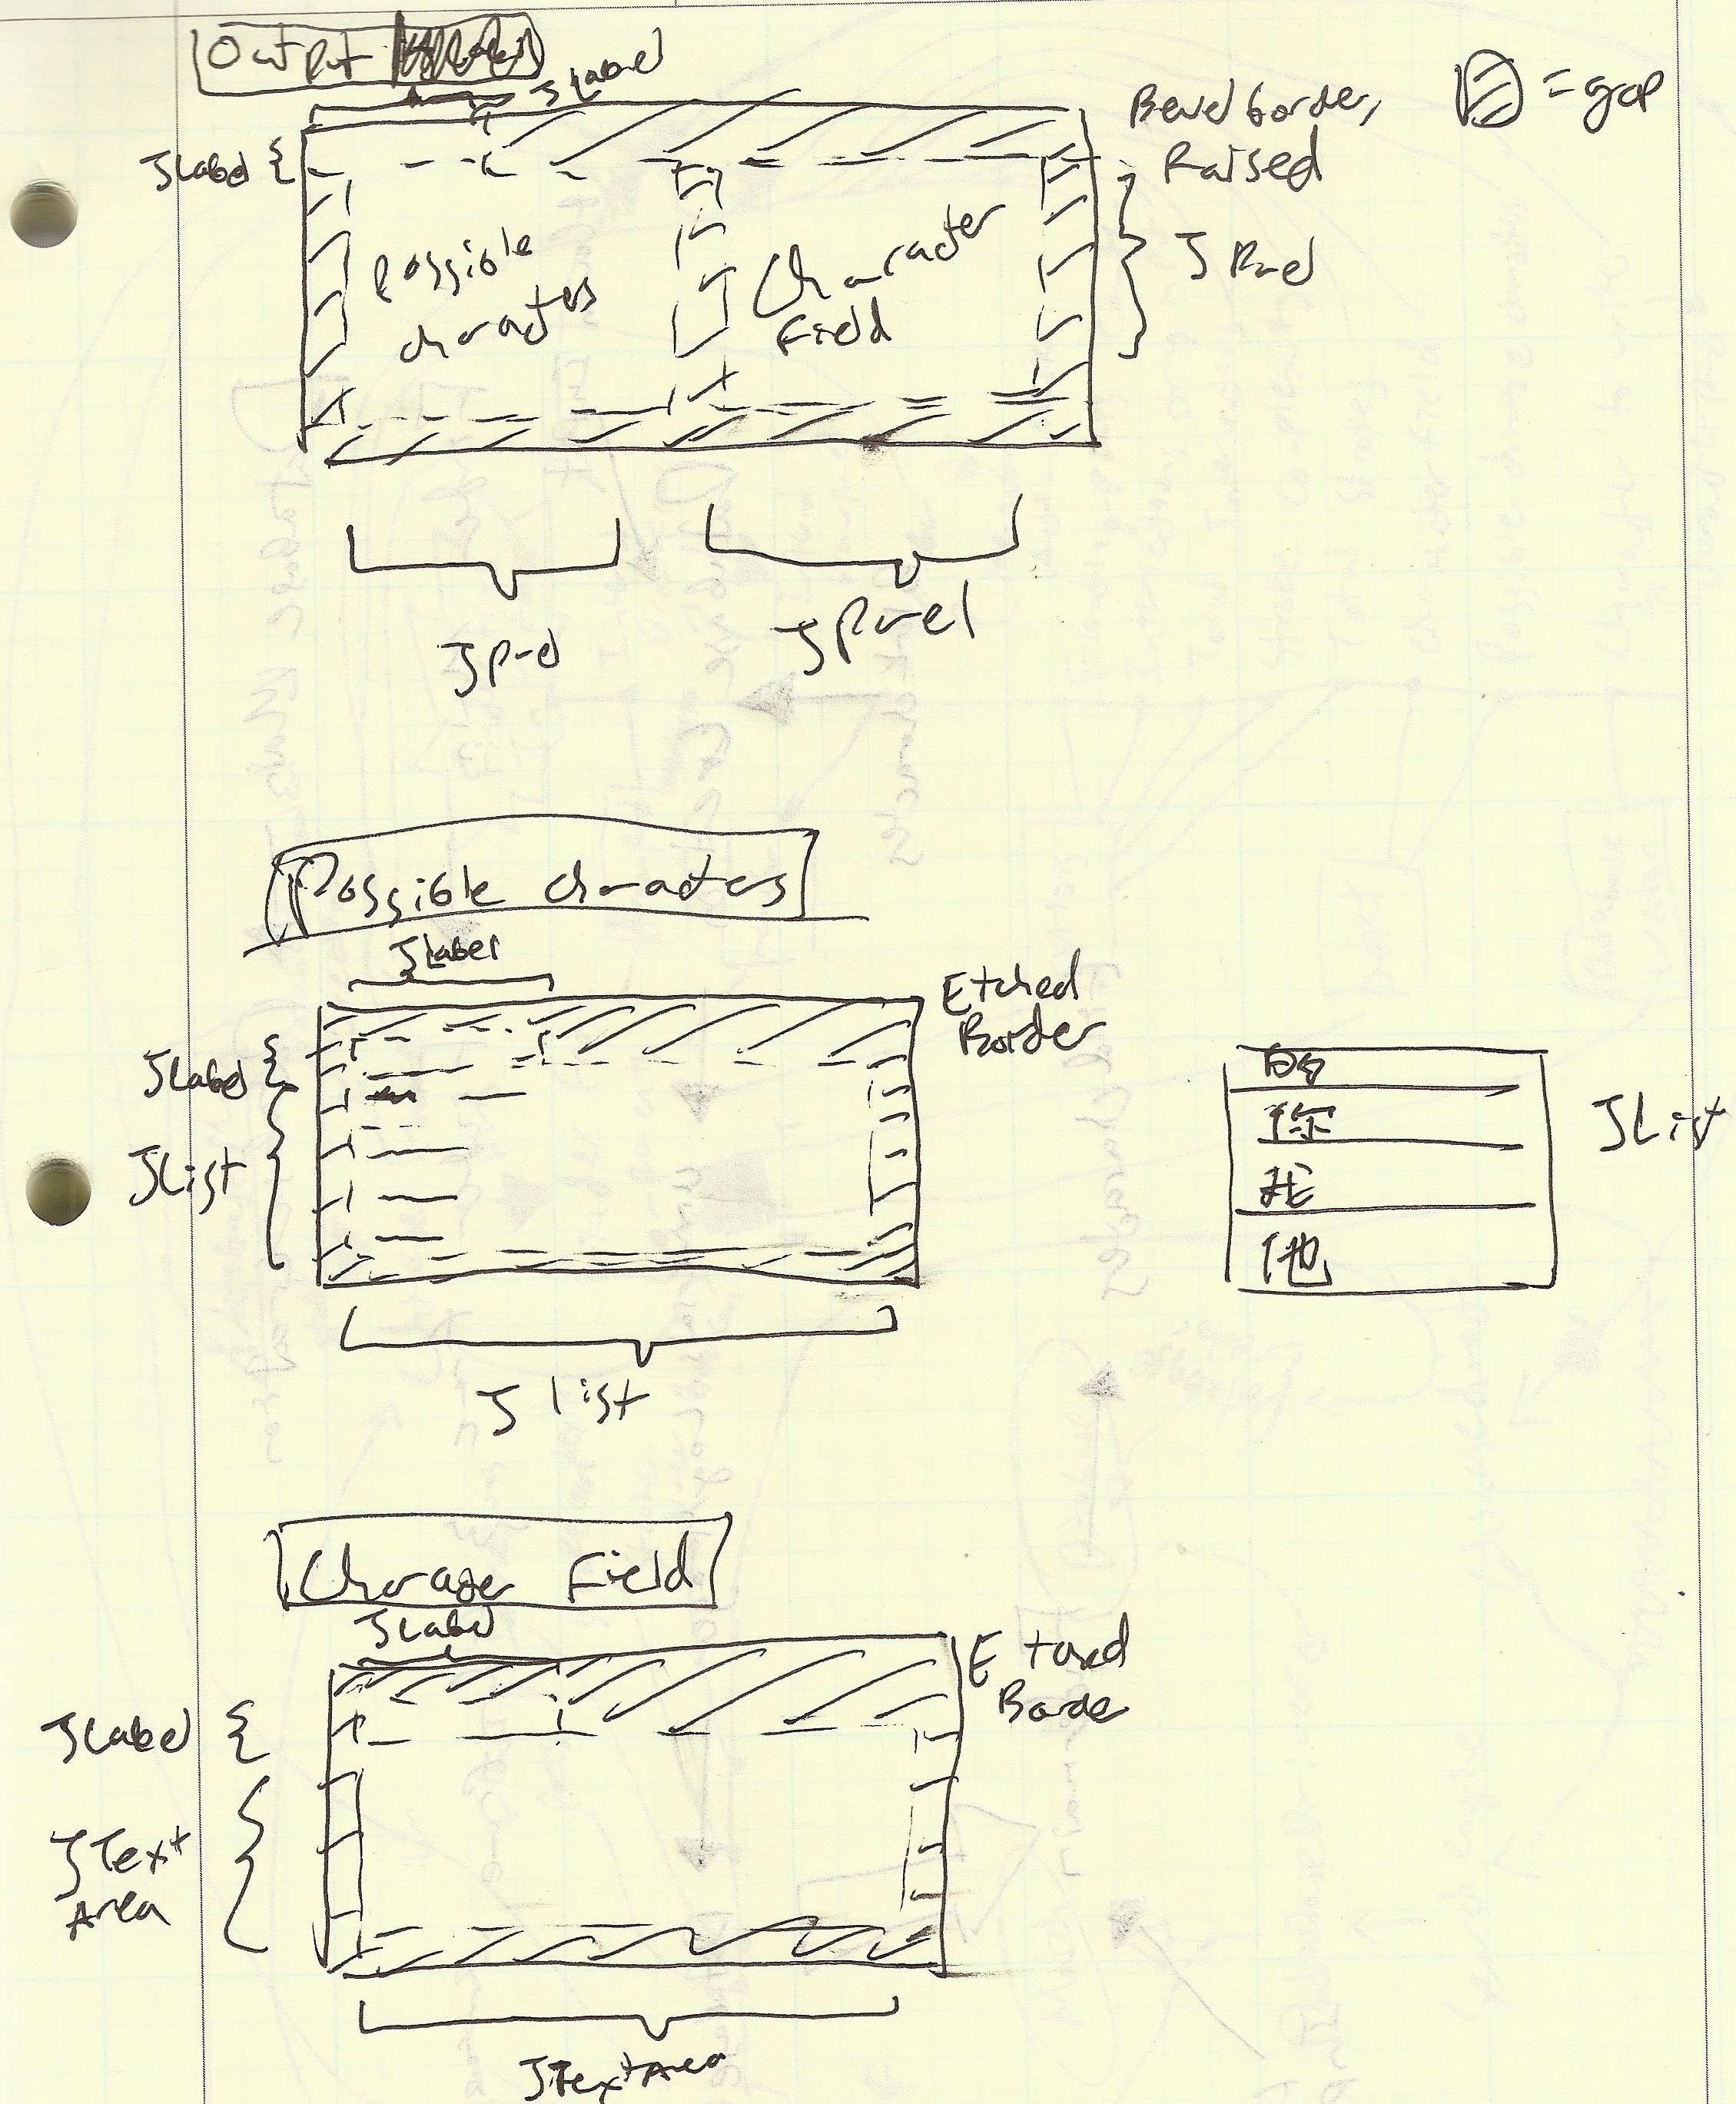 Output
JLabel
Bevel border,
Raised
= gap
JLabel
Possible
characters
Character
Field
JPanel
JPanel
JPanel
Possible characters
JLabel
Etched
Border
JLabel
JList
JList
你
我
他
JList
Character Field
JLabel
Etched
Border
JLabel
JText
Area
JTextArea